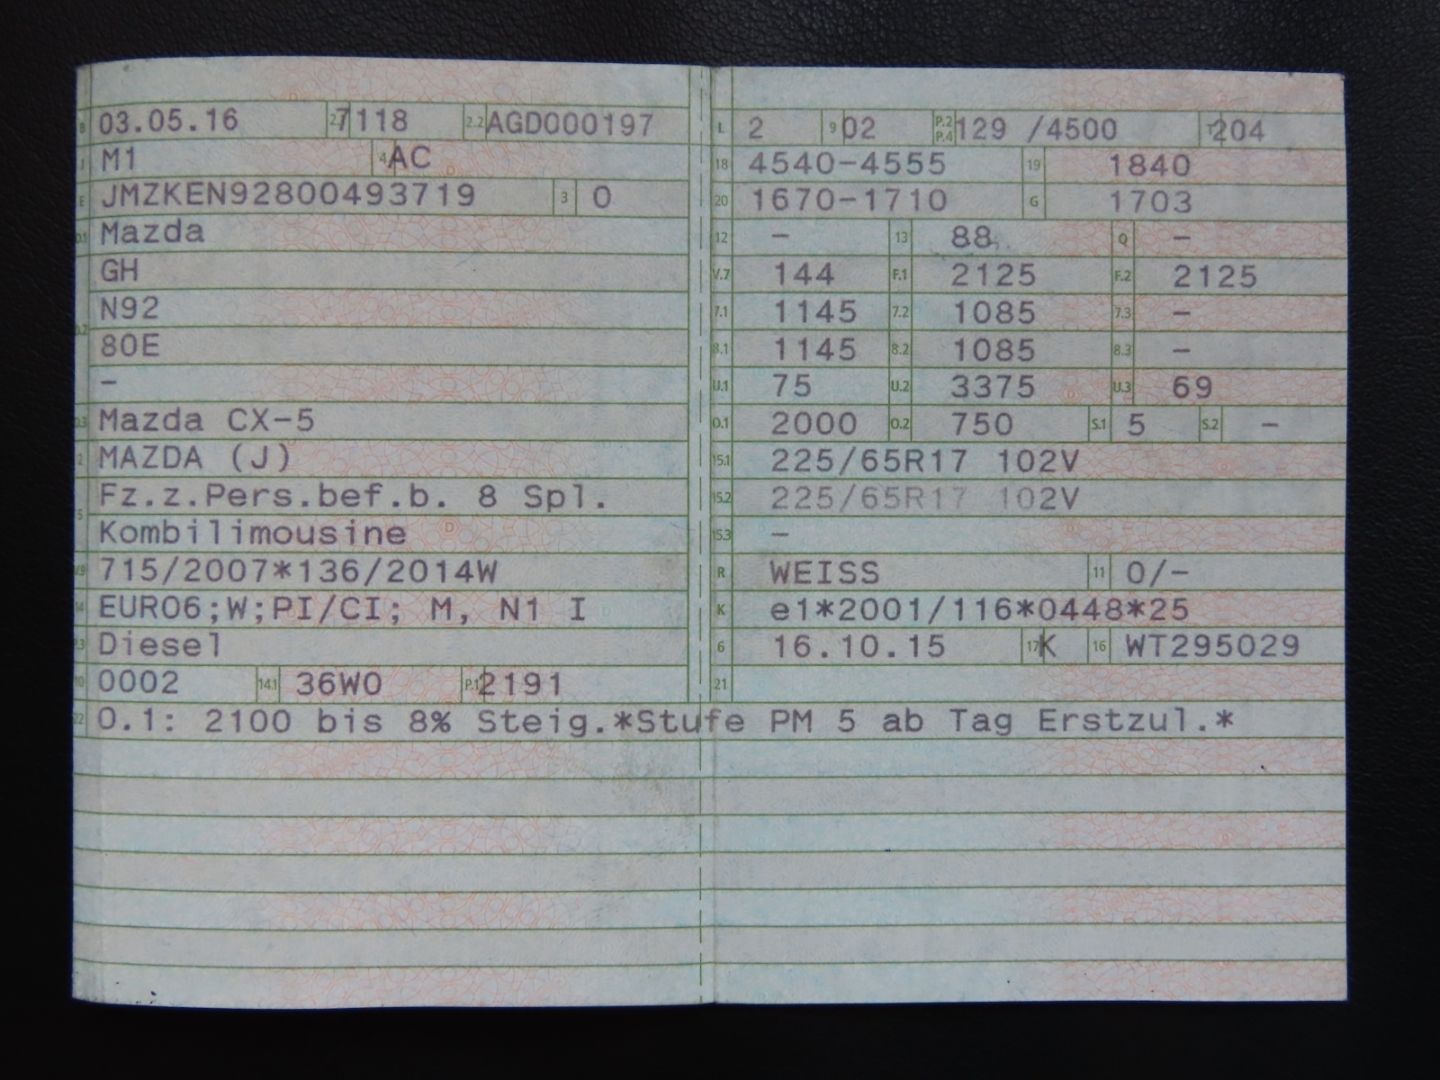 B 03.05.16 2.1 7118 2.2 AGD000197
J M1 4 AC
E JMZKEN92800493719 3 0
D.1 Mazda
GH
D.2 N92
80E
–
D.3 Mazda CX-5
2 MAZDA (J)
Fz.z.Pers.bef.b. 8 Spl.
5 Kombilimousine
V.9 715/2007*136/2014W
14 EURO6;W;PI/CI; M, N1 I
P.3 Diesel
10 0002 14.1 36W0 P.1 2191
22 O.1: 2100 bis 8% Steig.*Stufe PM 5 ab Tag Erstzul.*
L 2 9 02 P.2 P.4 129 /4500 T 204
18 4540-4555 19 1840
20 1670-1710 G 1703
12 – 13 88 Q –
V.7 144 F.1 2125 F.2 2125
7.1 1145 7.2 1085 7.3 –
8.1 1145 8.2 1085 8.3 –
U.1 75 U.2 3375 U.3 69
O.1 2000 O.2 750 S.1 5 S.2 –
15.1 225/65R17 102V
15.2 225/65R17 102V
15.3 –
R WEISS 11 0/-
K e1*2001/116*0448*25
6 16.10.15 17 K 16 WT295029
21